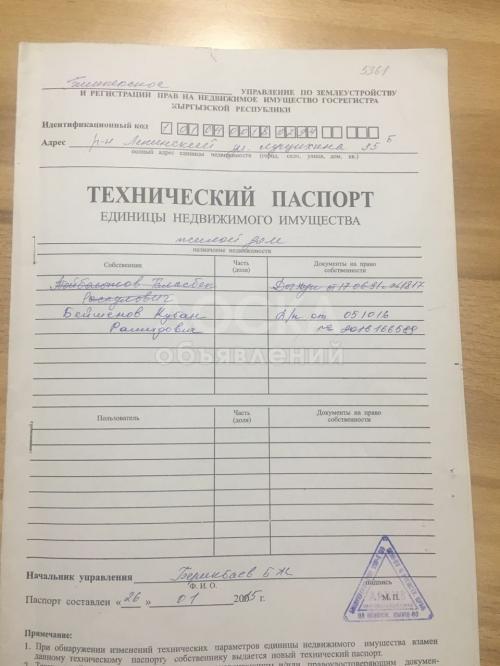 5361
Бишкекское УПРАВЛЕНИЕ ПО ЗЕМЛЕУСТРОЙСТВУ
И РЕГИСТРАЦИИ ПРАВ НА НЕДВИЖИМОЕ ИМУЩЕСТВО ГОСРЕГИСТРА
КЫРГЫЗСКОЙ РЕСПУБЛИКИ
Идентификационный код
Адрес р-н Ленинский ул. 95 Б
полный адрес единицы недвижимости (город, село, улица, дом, кв.)
ТЕХНИЧЕСКИЙ ПАСПОРТ
ЕДИНИЦЫ НЕДВИЖИМОГО ИМУЩЕСТВА
жилой дом
назначение недвижимости
Собственник Часть (доля) Документы на право собственности
от 17.06.91 №1817
Бейшенов Кубан д/к от 051016
Рашидович № 2016166589
ДОСКА
объявлений
Пользователь Часть (доля) Документы на право собственности
Начальник управления
Ф. И. О. подпись
Паспорт составлен «26» 01 2005г. М.П.
Примечание:
1. При обнаружении изменений технических параметров единицы недвижимого имущества взамен
данному техническому паспорту собственнику выдается новый технический паспорт.